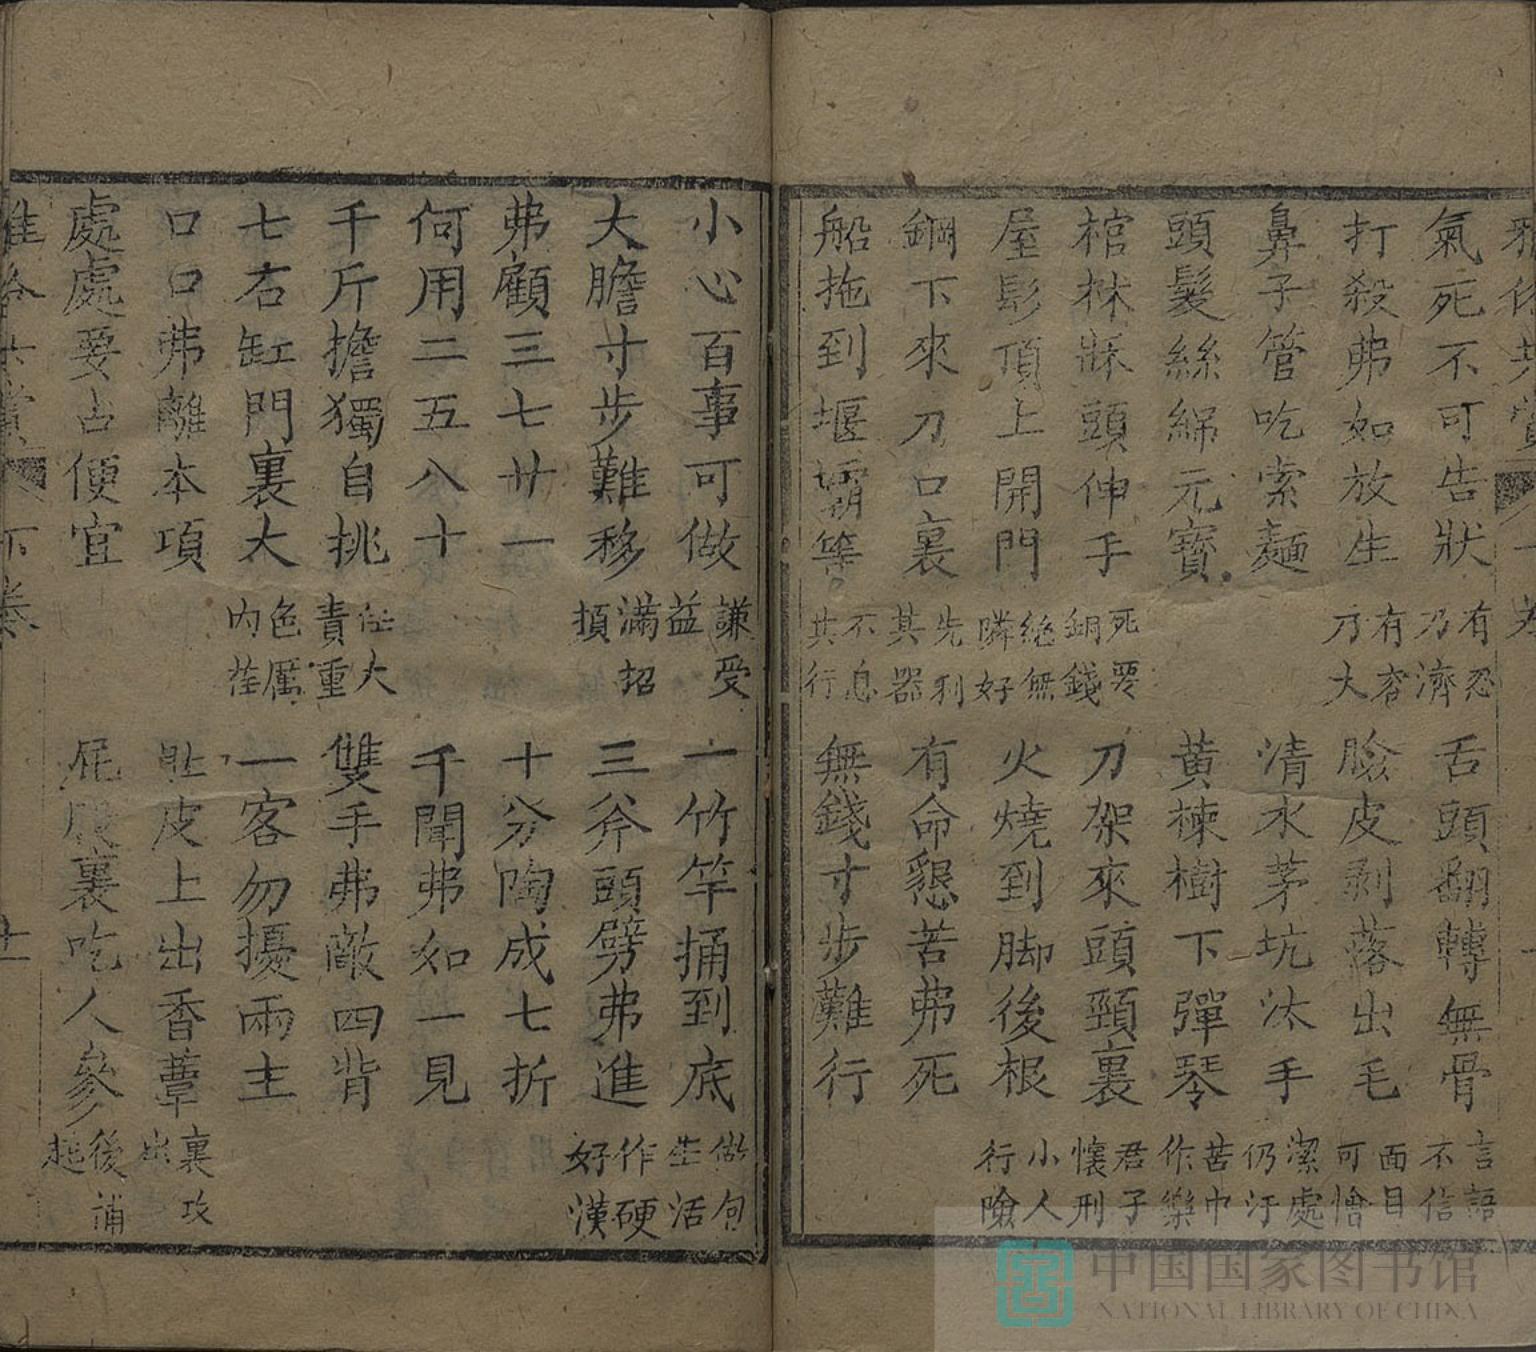 氣死不可告狀 有忍乃濟 舌頭翻轉無骨 言語不信
打殺弗如放生 有容乃大 臉皮剥落出毛 面目可憎
鼻子管吃索麵 清水茅坑汰手 潔處仍汙
頭髮絲綿元寶 黄楝樹下彈琴 苦中作樂
棺材牀頭伸手 死要銅錢 刀架來頭頸裏 君子懷刑
屋髟頂上開門 絶無隣好 火燒到脚後根 小人行險
鋼下來刀口裏 先利其器 有命懇苦弗死
船拖到堰壩等 不息其行 無錢寸步難行
小心百事可做 謙受益 一竹竿捅到底 做句生活
大膽寸步難移 滿招損 三斧頭劈弗進 作硬好漢
弗顧三七廿一 十分陶成七折
何用二五八十 千聞弗如一見
千斤擔獨自挑 任大責重 雙手弗敵四背
七石缸門裏大 色厲内荏 一客勿擾兩主
口口弗離本項 肚皮上出香蕈 裏攻出
處處要占便宜 屁股裏吃人參 後補
中国国家图书馆
NATIONAL LIBRARY OF CHINA